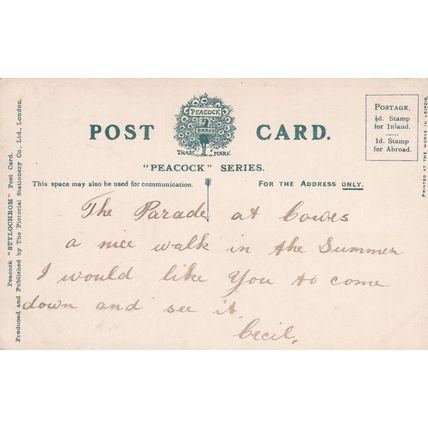 PEACOCK
BRAND
TRADE MARK
POST CARD.
"PEACOCK" SERIES.
This space may also be used for communication.
FOR THE ADDRESS ONLY.
POSTAGE.
½d. Stamp
for Inland.
1d. Stamp
for Abroad.
Peacock "STYLOCHROM" Post Card.
Produced and Published by The Pictorial Stationery Co., Ltd., London.
PRINTED AT THE WORKS IN LEIPZIG.
The Parade at Cowes
a nice walk in the Summer
I would like You to come
down and see it.
Cecil,